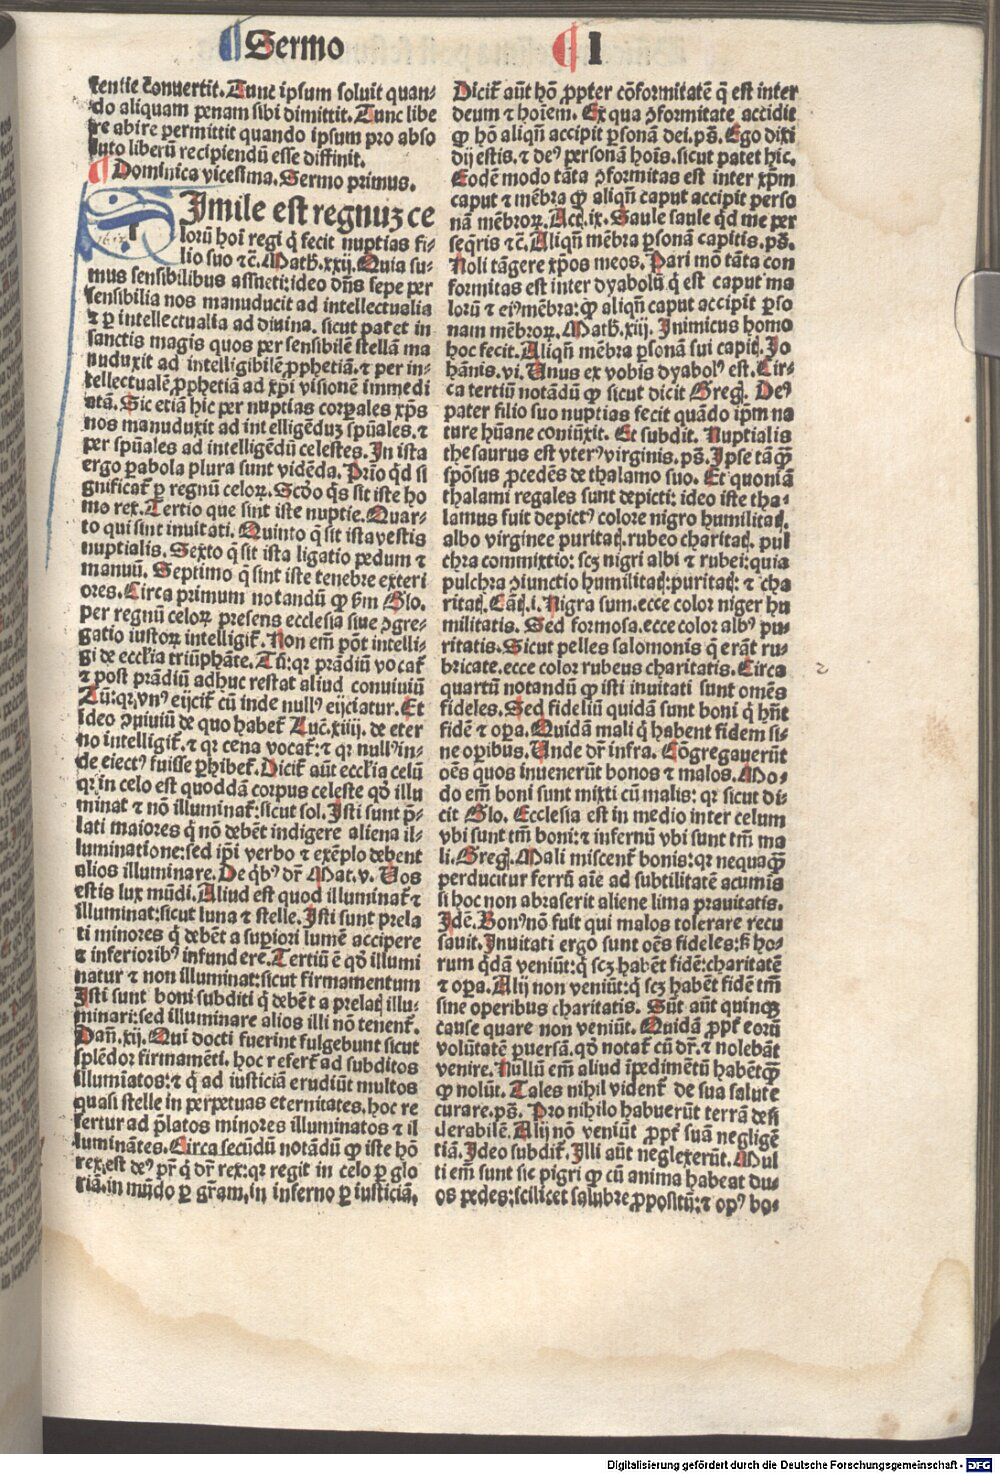 Sermo I
tentie cōuertit. Tunc ipsum soluit quan-
do aliquam penam sibi dimittit. Tunc libe
re abire permittit quando ipsum pro abso
luto liberū recipiendū esse diffinit.
Dominica vicesima. Sermo primus.
Simile est regnuz ce
lorū hoī regi q̄ fecit nuptias fi-
lio suo ⁊c̄. Math̄. xxij. Quia su-
mus sensibilibus assueti: ideo dn̄s sepe per
sensibilia nos manuducit ad intellectualia
⁊ ꝑ intellectualia ad diuina. sicut patet in
sanctis magis quos per sensibilē stellā ma
nuduxit ad intelligibilē ꝓphetiā. ⁊ per in-
tellectualē ꝓphetiā ad xp̄i visionē immedi
atā. Sic etiā hic per nuptias corꝑales xp̄s
nos manuduxit ad intelligēduz spūales. ⁊
per spūales ad intelligēdū celestes. In ista
ergo ꝑabola plura sunt vidēda. Prīo qd̄ si
gnificat̄ ꝑ regnū celoꝝ. Scd̄o q̄s sit iste ho
mo rex. Tertio que sint iste nuptie. Quar-
to qui sint inuitati. Quinto q̄ sit ista vestis
nuptialis. Sexto q̄ sit ista ligatio pedum ⁊
manuū. Septimo q̄ sint iste tenebre exteri
ores. Circa primum notandū ꝙ ẜm Glo.
per regnū celoꝝ presens ecclesia siue ꝯgre-
gatio iustoꝝ intelligit̄. Non em̄ pōt intelli-
gi de eccl'ia triūphāte. Tū: qꝛ prādiū vocat̄
⁊ post prādiū adhuc restat aliud conuiuiū
Tū: qꝛ vnꝰ eijcit̄ cū inde nullꝰ eijciatur. Et
ideo ꝯuiuiū de quo habet̄ Luc̄. xiiij. de eter
no intelligit̄. ⁊ qꝛ cena vocat̄: ⁊ qꝛ nullꝰ in-
de eiectꝰ fuisse ꝑhibet̄. Dicit̄ aūt eccl'ia celū
qꝛ in celo est quoddā corpus celeste qd̄ illu
minat ⁊ nō illuminat̄: sicut sol. Isti sunt p̄-
lati maiores q̄ nō debēt indigere aliena il-
luminatione: sed ip̄i verbo ⁊ exēplo debent
alios illuminare. De q̄bꝰ dr̄ Mat. v. Vos
estis lux mūdi. Aliud est quod illuminat̄ ⁊
illuminat: sicut luna ⁊ stelle. Isti sunt prela
ti minores q̄ debēt a supiori lumē accipere
⁊ inferioribꝰ infundere. Tertiū ē qd̄ illumi
natur ⁊ non illuminat: sicut firmamentum
Isti sunt boni subditi q̄ debēt a prelatꝭ illu-
minari: sed illuminare alios illi nō tenent̄.
Dan̄. xij. Qui docti fuerint fulgebunt sicut
splēdor firmamēti. hoc refert̄ ad subditos
illumīatos: ⁊ q̄ ad iusticiā erudiūt multos
quasi stelle in perpetuas eternitates. hoc re
fertur ad p̄latos minores illuminatos ⁊ il
luminātes. Circa secūdū notādū ꝙ iste hō
rex. est deꝰ pr̄ q̄ dr̄ rex: qꝛ regit in celo ꝑ glo
riā. in mūdo ꝑ gr̄am, in inferno ꝑ iusticiā.
Dicit̄ aūt hō ꝓpter cōformitatē q̄ est inter
deum ⁊ hoīem. Ex qua ꝯformitate accidit
ꝙ hō aliqn̄ accipit ꝑsonā dei. pṡ. Ego dixi
dij estis. ⁊ deꝰ personā hoīs. sicut patet hic.
Eodē modo tāta ꝯformitas est inter xp̄m
caput ⁊ mēbra ꝙ aliqn̄ caput accipit perso
nā mēbroꝝ. Act. ix. Saule saule qd̄ me per
seq̄ris ⁊c̄. Aliqn̄ mēbra ꝑsonā capitis. pṡ.
Noli tāgere xp̄os meos. Pari mō tāta con
formitas est inter dyabolū q̄ est caput ma
lorū ⁊ eiꝰ mēbra: ꝙ aliqn̄ caput accipit ꝑso
nam mēbroꝝ. Math̄. xiij. Inimicus homo
hoc fecit. Aliqn̄ mēbra ꝑsonā sui capitꝭ. Jo
hānis. vi. Unus ex vobis dyabolꝰ est. Cir-
ca tertiū notādū ꝙ sicut dicit Greḡ. Deꝰ
pater filio suo nuptias fecit quādo ip̄m na
ture hūane coniūxit. Et subdit. Nuptialis
thesaurus est vterꝰ virginis. pṡ. Ipse tāꝙ̄
spōsus ꝓcedēs de thalamo suo. Et quoniā
thalami regales sunt depicti: ideo iste tha-
lamus fuit depictꝰ colore nigro humilitatꝭ.
albo virginee puritatꝭ. rubeo charitatꝭ. pul
chra commixtio: scz nigri albi ⁊ rubei: quia
pulchra ꝯiunctio humilitatꝭ: puritatꝭ: ⁊ cha
ritatꝭ. Cāt. i. Nigra sum. ecce color niger hu
militatis. Sed formosa. ecce color albꝰ pu-
ritatis. Sicut pelles salomonis q̄ erāt ru-
bricate. ecce color rubeus charitatis. Circa
quartū notandū ꝙ isti inuitati sunt omēs
fideles. Sed fideliū quidā sunt boni q̄ hn̄t
fidē ⁊ opa. Quidā mali q̄ habent fidem si-
ne operibus. Unde dr̄ infra. Cōgregauerūt
oēs quos inuenerūt bonos ⁊ malos. Mo-
do em̄ boni sunt mixti cū malis: qꝛ sicut di-
cit Glo. Ecclesia est in medio inter celum
vbi sunt tm̄ boni: ⁊ infernū vbi sunt tm̄ ma
li. Greḡ. Mali miscent̄ bonis: qꝛ nequaꝙ̄
perducitur ferrū aīe ad subtilitatē acumīs
si hoc non abraserit aliene lima prauitatis.
Idē. Bonꝰ nō fuit qui malos tolerare recu
sauit. Inuitati ergo sunt oēs fideles: ẜ ho-
rum qdā veniūt: q̄ scz habēt fidē: charitatē
⁊ opa. Alij non veniūt: q̄ scz habēt fidē tm̄
sine operibus charitatis. Sūt aūt quinqꝫ
cause quare non veniūt. Quidā ꝓpt̄ eorū
volūtatē ꝑuersā. qd̄ notat̄ cū dr̄. ⁊ nolebāt
venire. Nullū em̄ aliud īpedimētū habēt ꝙ̄
ꝙ nolūt. Tales nihil vident̄ de sua salute
curare. pṡ. Pro nihilo habuerūt terrā desi
derabilē. Alij nō veniūt ꝓpt̄ suā negligē
tiā. Ideo subdit̄. Illi aūt neglexerūt. Mul
ti em̄ sunt sic pigri ꝙ cū anima habeat du-
os pedes: scilicet salubre ꝓpositū: ⁊ opꝰ bo-
Digitalisierung gefördert durch die Deutsche Forschungsgemeinschaft - DFG